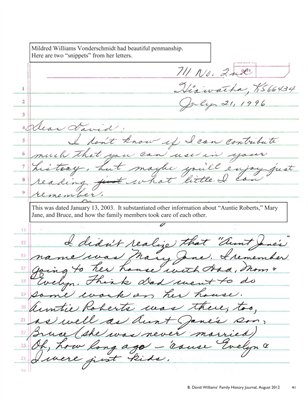 Mildred Williams Vonderschmidt had beautiful penmanship.
Here are two "snippets" from her letters.
711 No. 2nd
Hiawatha, KS 66434
July 21, 1996
Dear David:
I don't know if I can contribute
much that you can use in your
history, but maybe you'll enjoy just
reading what little I can
remember.
This was dated January 13, 2003. It substantiated other information about "Auntie Roberts," Mary
Jane, and Bruce, and how the family members took care of each other.
I didn't realize that "Aunt Jane's"
name was Mary Jane. I remember
going to her house with Dad, Mom &
Evelyn. Think Dad went to do
some work on her house.
Auntie Roberts was there, too,
as well as Aunt Jane's son,
Bruce (she was never married)
Oh, how long ago - 'cause Evelyn &
I were just kids.
B. David Williams' Family History Journal, August 2012 41